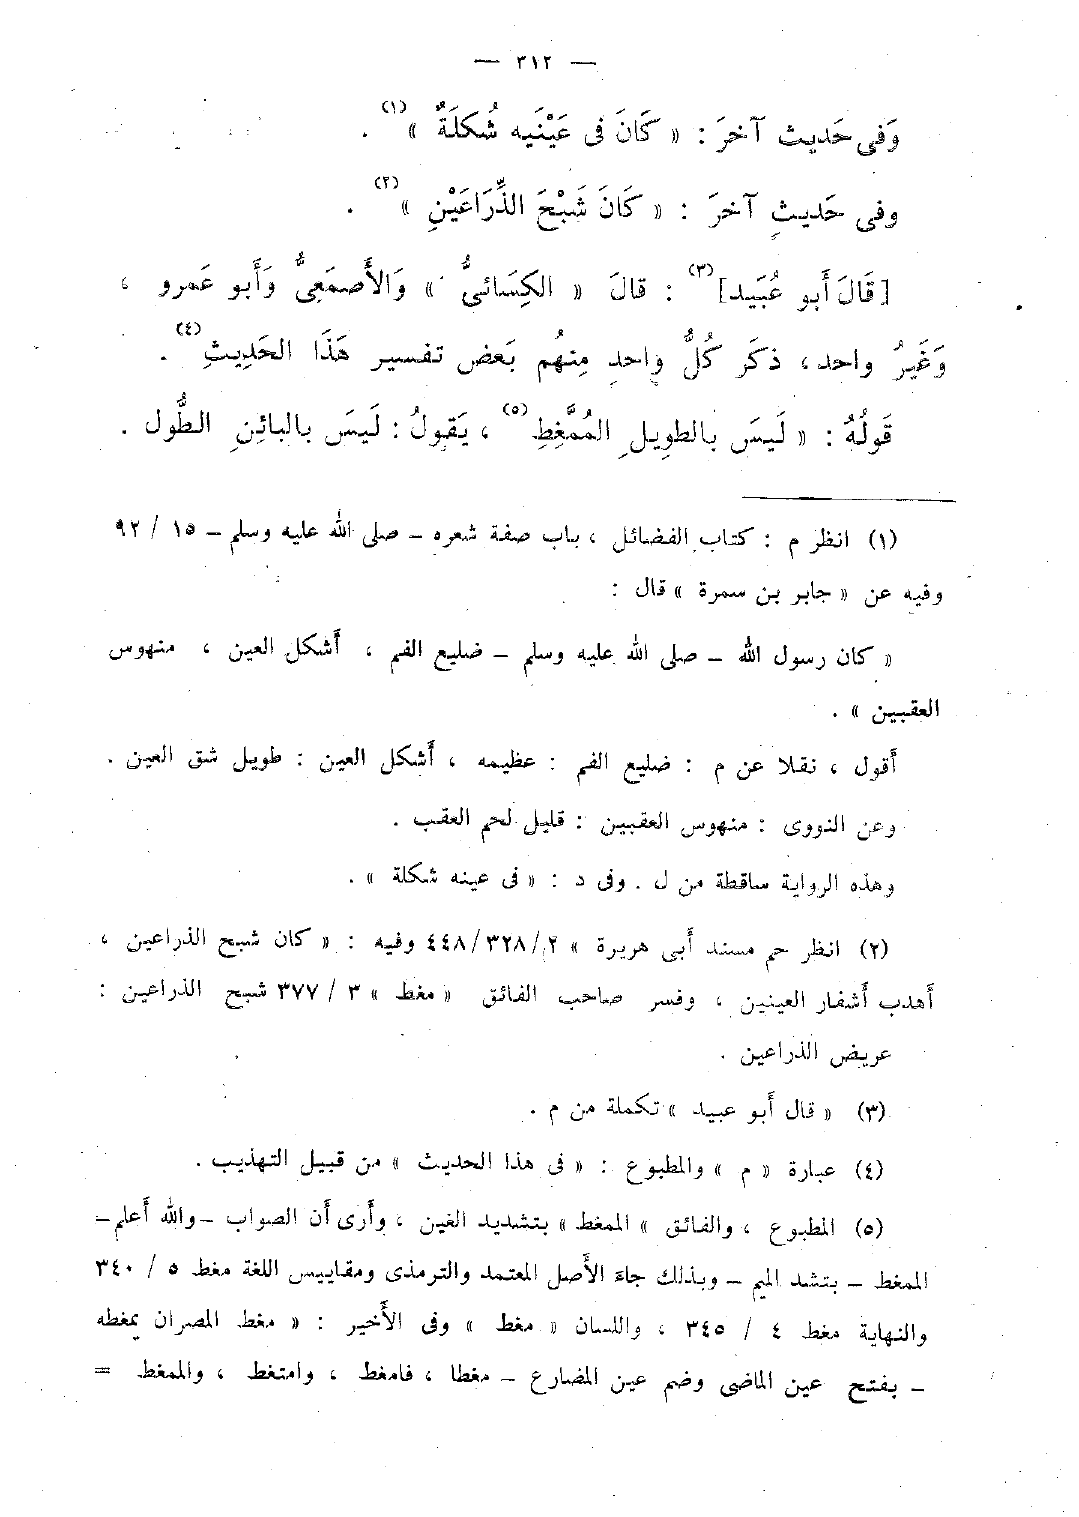 — ٣١٢ —
وَفى حَديث آخرَ : « كَانَ فى عَيْنَيه شُكلَةٌ »(١) .
وفى حَديثٍ آخرَ : « كَانَ شَبْحَ الذِّرَاعَيْنِ »(٢) .
[قَالَ أَبو عُبَيد](٣) : قالَ « الكِسَائىُّ » وَالأَصمَعِىُّ وَأَبو عَمرو ،
وَغَيرُ واحد ، ذكَر كُلُّ واحدٍ مِنهُم بَعض تفسير هَذَا الحَدِيثِ(٤) .
قَولُهُ : « لَيسَ بالطويلِ المُمَّغِطِ(٥) ، يَقولُ : لَيسَ بالبائِنِ الطُّول .
(١) انظر م : كتاب الفضائل ، باب صفة شعره – صلى الله عليه وسلم – ١٥ / ٩٢
وفيه عن « جابر بن سمرة » قال :
« كان رسول الله – صلى الله عليه وسلم – ضليع الفم ، أَشكل العين ، منهوس
العقبين » .
أَقول ، نقلا عن م : ضليع الفم : عظيمه ، أَشكل العين : طويل شق العين .
وعن النووى : منهوس العقبين : قليل لحم العقب .
وهذه الرواية ساقطة من ل . وفى د : « فى عينه شكلة » .
(٢) انظر حم مسند أَبى هريرة » ٢ / ٣٢٨ / ٤٤٨ وفيه : « كان شبح الذراعين ،
أَهدب أَشفار العينين ، وفسر صاحب الفائق « مغط » ٣ / ٣٧٧ شبح الذراعين :
عريض الذراعين .
(٣) « قال أَبو عبيد » تكملة من م .
(٤) عبارة « م » والمطبوع : « فى هذا الحديث » من قبيل التهذيب .
(٥) المطبوع ، والفائق » الممغط » بتشديد الغين ، وأَرى أَن الصواب – والله أَعلم –
الممغط – بتشد الميم – وبذلك جاءَ الأَصل المعتمد والترمذى ومقاييس اللغة مغط ٥ / ٣٤٠
والنهاية مغط ٤ / ٣٤٥ ، واللسان « مغط » وفى الأَخير : « مغط المصران يمغطه
– بفتح عين الماضى وضم عين المضارع – مغطا ، فامغط ، وامتغط ، والممغط =